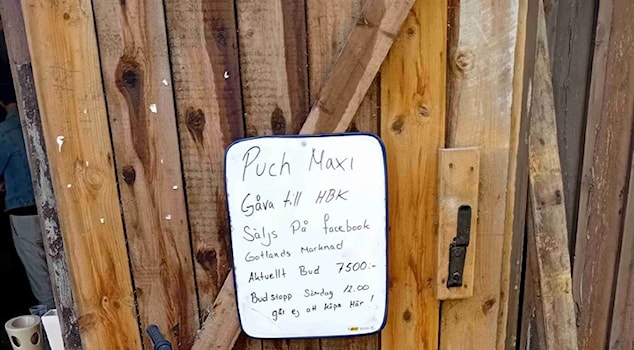 Puch Maxi
Gåva till HBK
Säljs På facebook
Gotlands Marknad
Aktuellt Bud 7500:-
Budstopp Söndag 12.00
går ej att köpa Här!